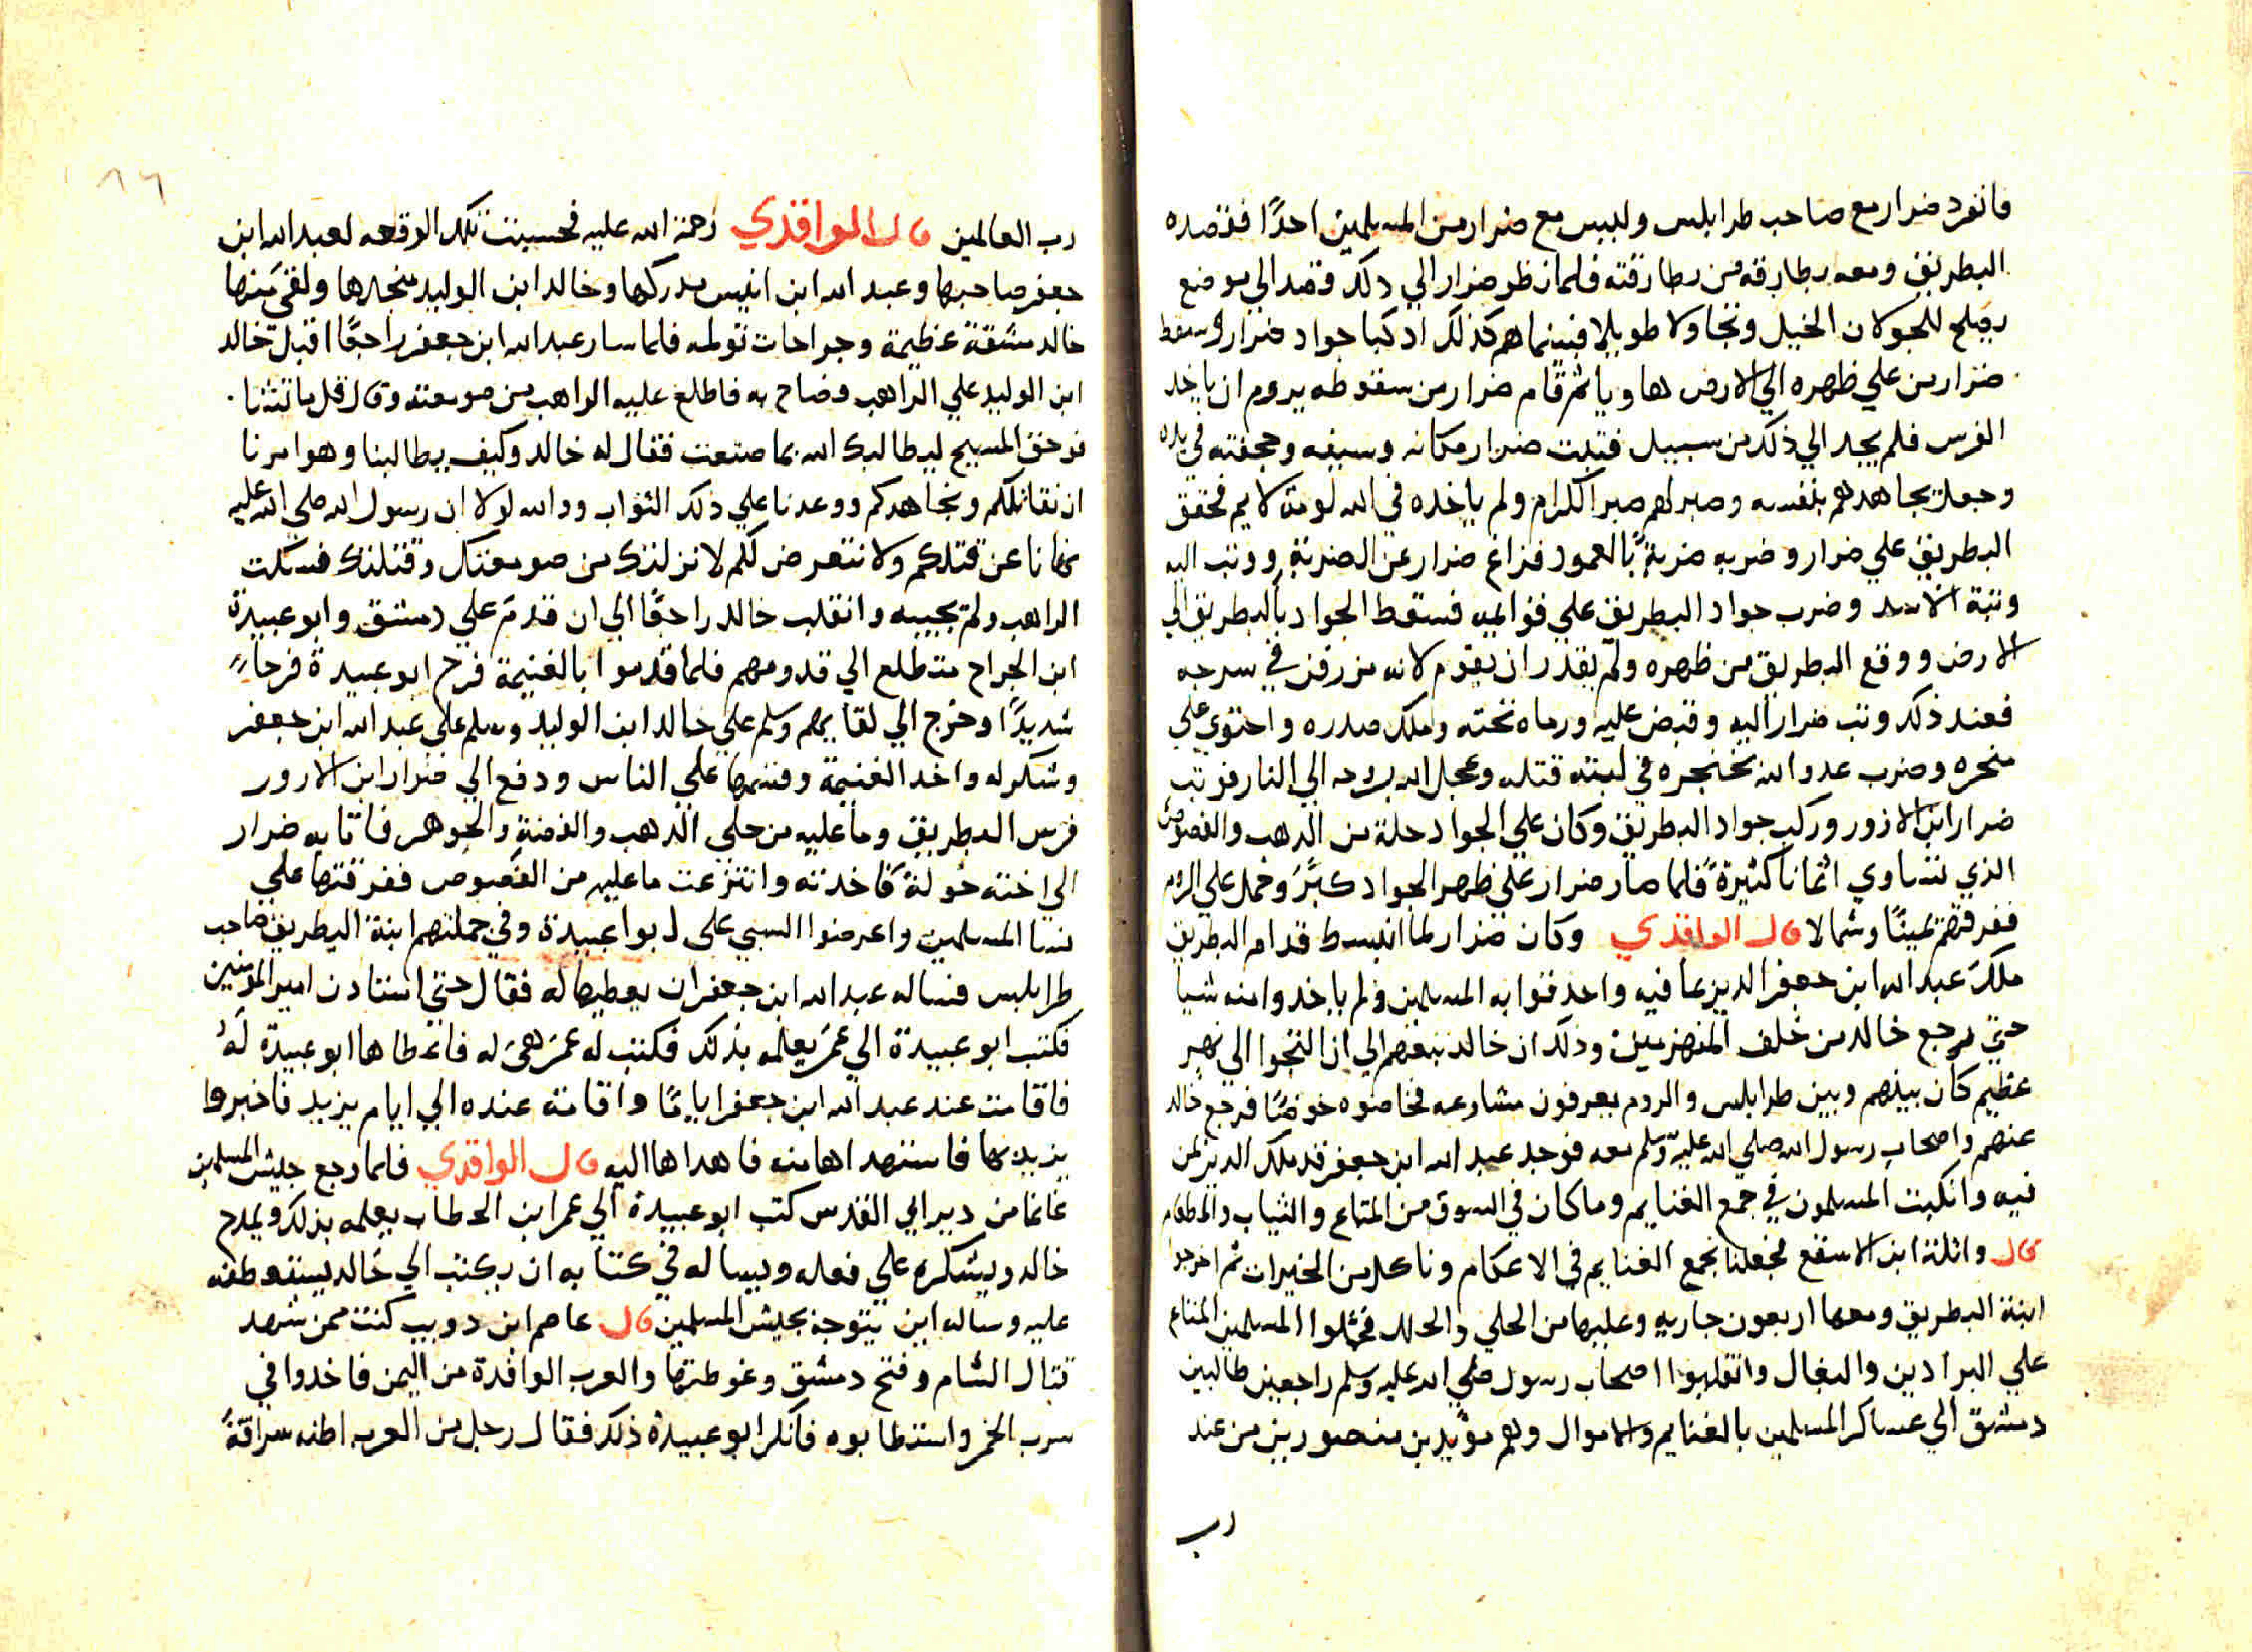 فانفرد ضرار مع صاحب طرابلس وليس مع ضرار من المسلمين احدًا فقصده
البطريق ومعه بطارقه من بطارقته فلما نظر ضرار الي دلك قصد الي موضع
يصلح للجولان الخيل وتجاولا طويلا فبينما هم كذلك اد كبا جواد ضرار وسقط
ضرار من علي ظهره الي الارض هاويا ثم قام ضرار من سقوطه يروم ان ياخد
الفرس فلم يجد الي ذلك من سبيل فتبت ضرار مكانه وسيفه وحجفته في يده
وجعل يجاهدهم بنفسه وصبر لهم صبر الكرام ولم ياخده في الله لومة لايم فحقق
البطريق علي ضرار وضربه ضربةً بالعمود فزاغ ضرار عن الضربة ووتب اليه
وتبة الاسد وضرب جواد البطريق علي قوايمه فسقط الجواد بالبطريق الي
الارض ووقع البطريق من ظهره ولم يقدر ان يقوم لانه مزرفن في سرجه
فعند ذلك وتب ضرار اليه وقبض عليه ورماه تحته وملك صدره واحتوي علي
منحره وضرب عدو الله بخنجره في لبته قتله وعجل الله بروحه الي النار فوتب
ضرار ابن الازور وركب جواد البطريق وكان علي الجواد حلة من الدهب والفصوص
الذي تساوي اثمانا كثيرةً فلما صار ضرار علي ظهر الجواد كبَّرَ وحمل علي الروم
ففرقهم يمينًا وشمالا قال الواقدي وكان ضرار لما انبسط قدام البطريق
ملك عبد الله ابن جعفر الدير بما فيه واحدقوا به المسلمين ولم ياخدوا منه شيا
حتي يرجع خالد من خلف المنهزمين ودلك ان خالد تبعهم الي ان التجوا الي نهر
عظيم كان بينهم وبين طرابلس والروم يعرفون مشارعه فخاضوه خوضًا فرجع خالد
عنهم واصحاب رسول الله صلي الله عليه وسلم معه فوجد عبد الله ابن جعفر قد ملك الدير بمن
فيه وانكبت المسلمون في جمع الغنايم وما كان في السوق من المتاع والثياب والطعام
قال واثلة ابن الاسقع فجعلنا نجمع الغنايم في الاعكام وناكل من الخيرات ثم اخرجوا
ابنة البطريق ومعها اربعون جاريه وعليها من الحلي والحلل فحملوا المسلمين المتاع
علي البرادين والبغال وانقلبوا اصحاب رسول صلي الله عليه وسلم راجعين طالبين
دمشق الي عساكر المسلمين بالغنايم والاموال وهم مويدين منصورين من عند
رب
٨٦
رب العالمين قال الواقدي رحمة الله عليه فحسبت تلك الوقعه لعبد الله ابن
جعفر صاحبها وعبد الله ابن انيس مدركها وخالد ابن الوليد منجدها ولقي منها
خالد مشقة عظيمة وجراحات تولمه فلما سار عبد الله ابن جعفر راجعًا اقبل خالد
ابن الوليد علي الراهب وصاح به فاطلع عليه الراهب من صومعته وقال قل ما تشا
فوحق المسيح ليطالبك الله بما صنعت فقال له خالد وكيف يطالبنا وهو امرنا
ان نقاتلكم ونجاهدكم ووعدنا علي دلك الثواب ووالله لولا ان رسول الله صلي الله عليه
نهانا عن قتلكم ولا نتعرض لكم لانزلنك من صومعتك وقتلنك فسكت
الراهب ولم يجيبه وانقلب خالد راجعًا الي ان قدم علي دمشق وابو عبيدة
ابن الجراح متطلع الي قدومهم فلما قدموا بالغنيمة فرح ابو عبيدة فرحا
شديدًا وخرج الي لقايهم وسلم علي خالد ابن الوليد وسلم علي عبد الله ابن جعفر
وشكر له واخد الغنيمة وقسمها علي الناس ودفع الي ضرار ابن الازور
فرس البطريق وما عليه من حلي الدهب والفضة والجوهر فاتا به ضرار
الي اخته خولة فاخدته وانتزعت ما عليه من الفصوص ففرقتها علي
نسا المسلمين واعرضوا السبي علي ابوا عبيدة وفي جملتهم ابنة البطريق صاحب
طرابلس فساله عبد الله ابن جعفر ان يعطيها له فقال حتي استادن امير المومنين
فكتب ابو عبيدة الي عمر يعلمه بذلك فكتب له عمر هي له فاعطاها ابو عبيدة له
فاقامت عند عبد الله ابن جعفر ايامًا واقامت عنده الي ايام يزيد فاخبروا
يزيد بها فاستهداها منه فاهداها اليه قال الواقدي فلما رجع جيش المسلمين
غانما من دير ابي القدس كتب ابو عبيدة الي عمر ابن الخطاب يعلمه بذلك ويمدح
خالد ويشكره علي فعله ويساله في كتابه ان يكتب الي خالد يستعطفه
عليه وساله اين يتوجه بجيش المسلمين قال عاصم ابن دويب كنت ممن شهد
قتال الشام وفتح دمشق وغوطتها والعرب الوافدة من اليمن فاخدوا في
سرب الخمر واستطابوه فانكر ابو عبيدة ذلك فقال رجل من العرب اظنه سراقةً